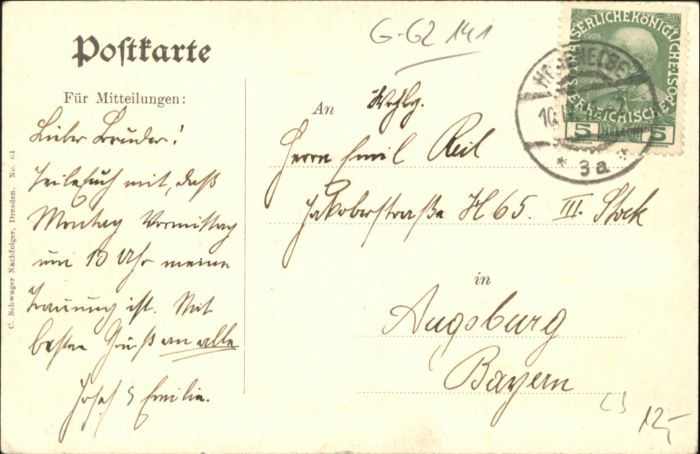 G-G2 141
Postkarte
Für Mitteilungen:
Lieber Bruder!
Teile Euch mit, daß
Montag Vormittag
um 10 Uhr meine
Trauung ist. Mit
besten Gruß an alle
Josef & Emilie.
An Wohlg.
Herrn Emil Reil
Jakoberstraße H 65. III. Stock
in
Augsburg
Bayern
C. Schwager Nachfolger, Dresden. No. 64
HOHENELBE
10
3a
1908
5 5
C3
12,-